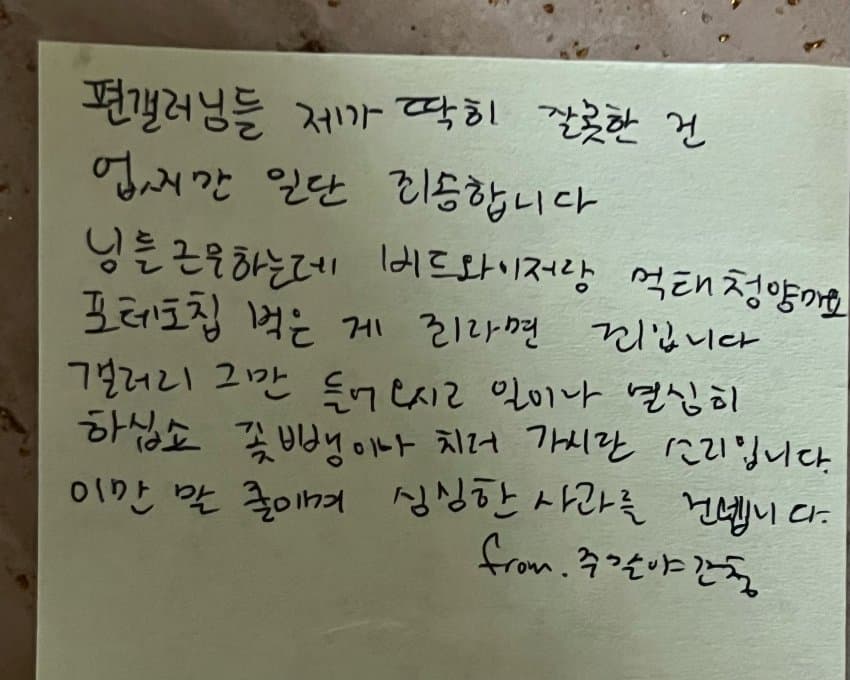 편갤러님들 제가 딱히 잘못한 건
업지만 일단 죄송합니다
님들 근무하는데 버드와이저랑 먹태청양마요
포테토칩 먹은 게 죄라면 죄입니다
갤러리 그만 들어오시고 일이나 열심히
하십쇼 꽃 빠뱅이나 치러 가시란 소리입니다.
이만 말 줄이며 심심한 사과를 건넵니다.
from. 주갈야간충